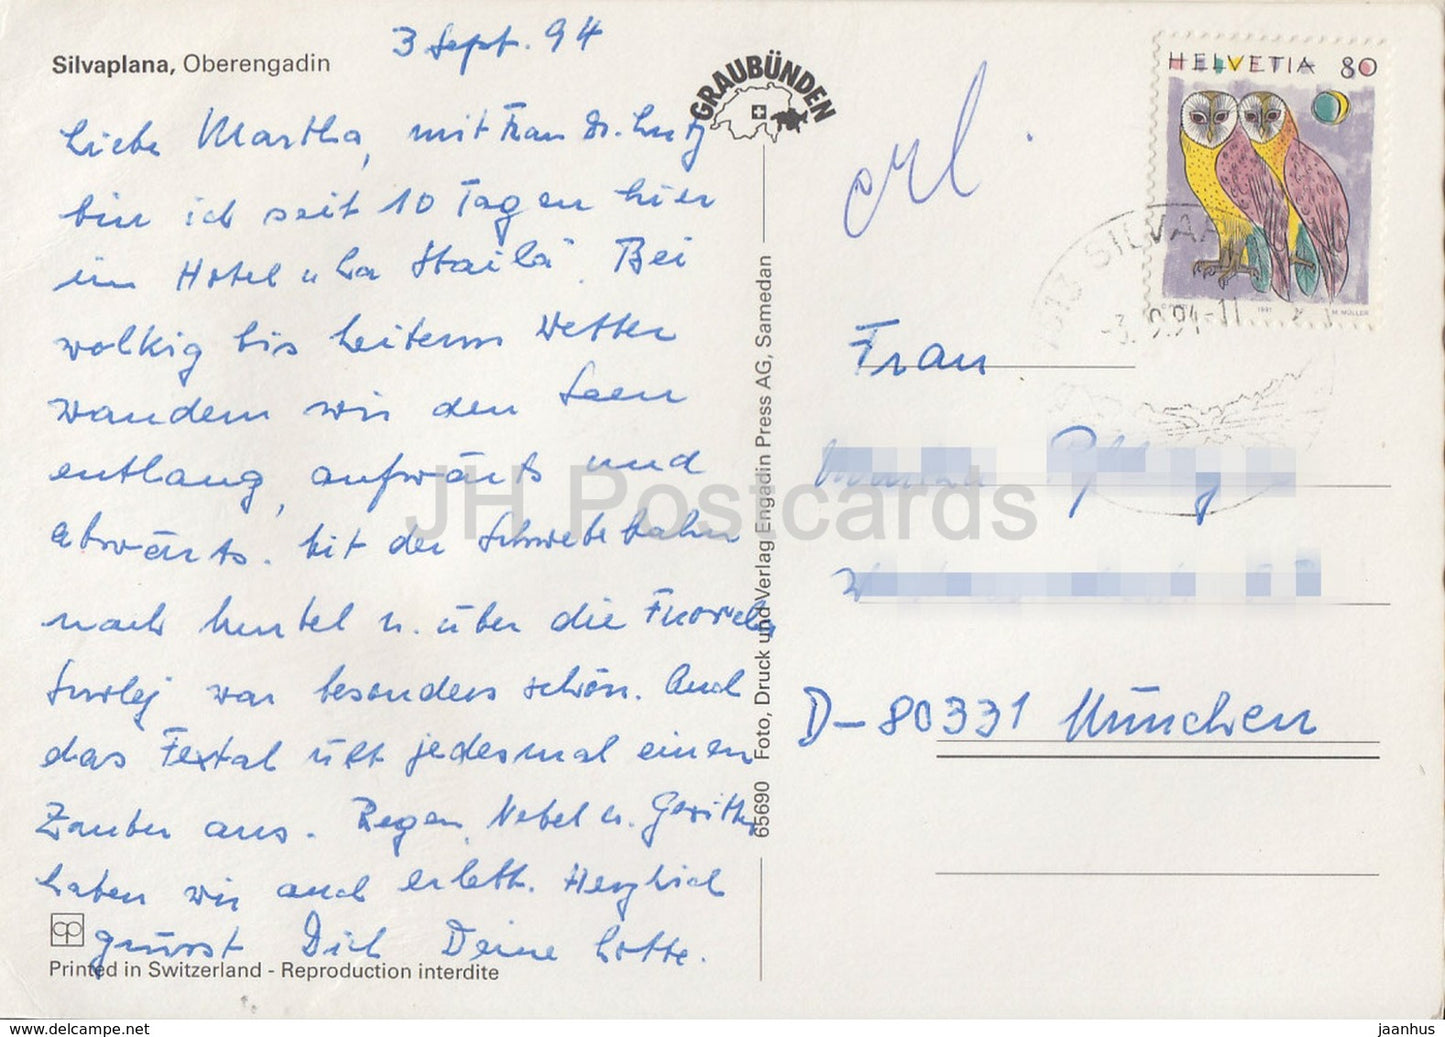 Silvaplana, Oberengadin
3 Sept. 94
Liebe Martha, mit Frau Dr. Lutz
bin ich seit 10 Tagen hier
im Hotel "La Staila". Bei
wolkig bis heiterm Wetter
wandern wir den Seen
entlang, aufwärts und
abwärts. Mit der Schwebebahn
nach Murtel u. über die Fuorcla
Surlej war besonders schön. Auch
das Fextal übt jedesmal einen
Zauber aus. Regen, Nebel u. Gewitter
haben wir auch erlebt. Herzlich
grüsst Dich Deine Lotte.
Printed in Switzerland - Reproduction interdite
GRAUBÜNDEN
65690 Foto, Druck und Verlag Engadin Press AG, Samedan
HELVETIA 80
1991 M. MÜLLER
SILVA
-3.9.94-11
Frau
D-80331 München
JH Postcards
www.delcampe.net
jaanhus